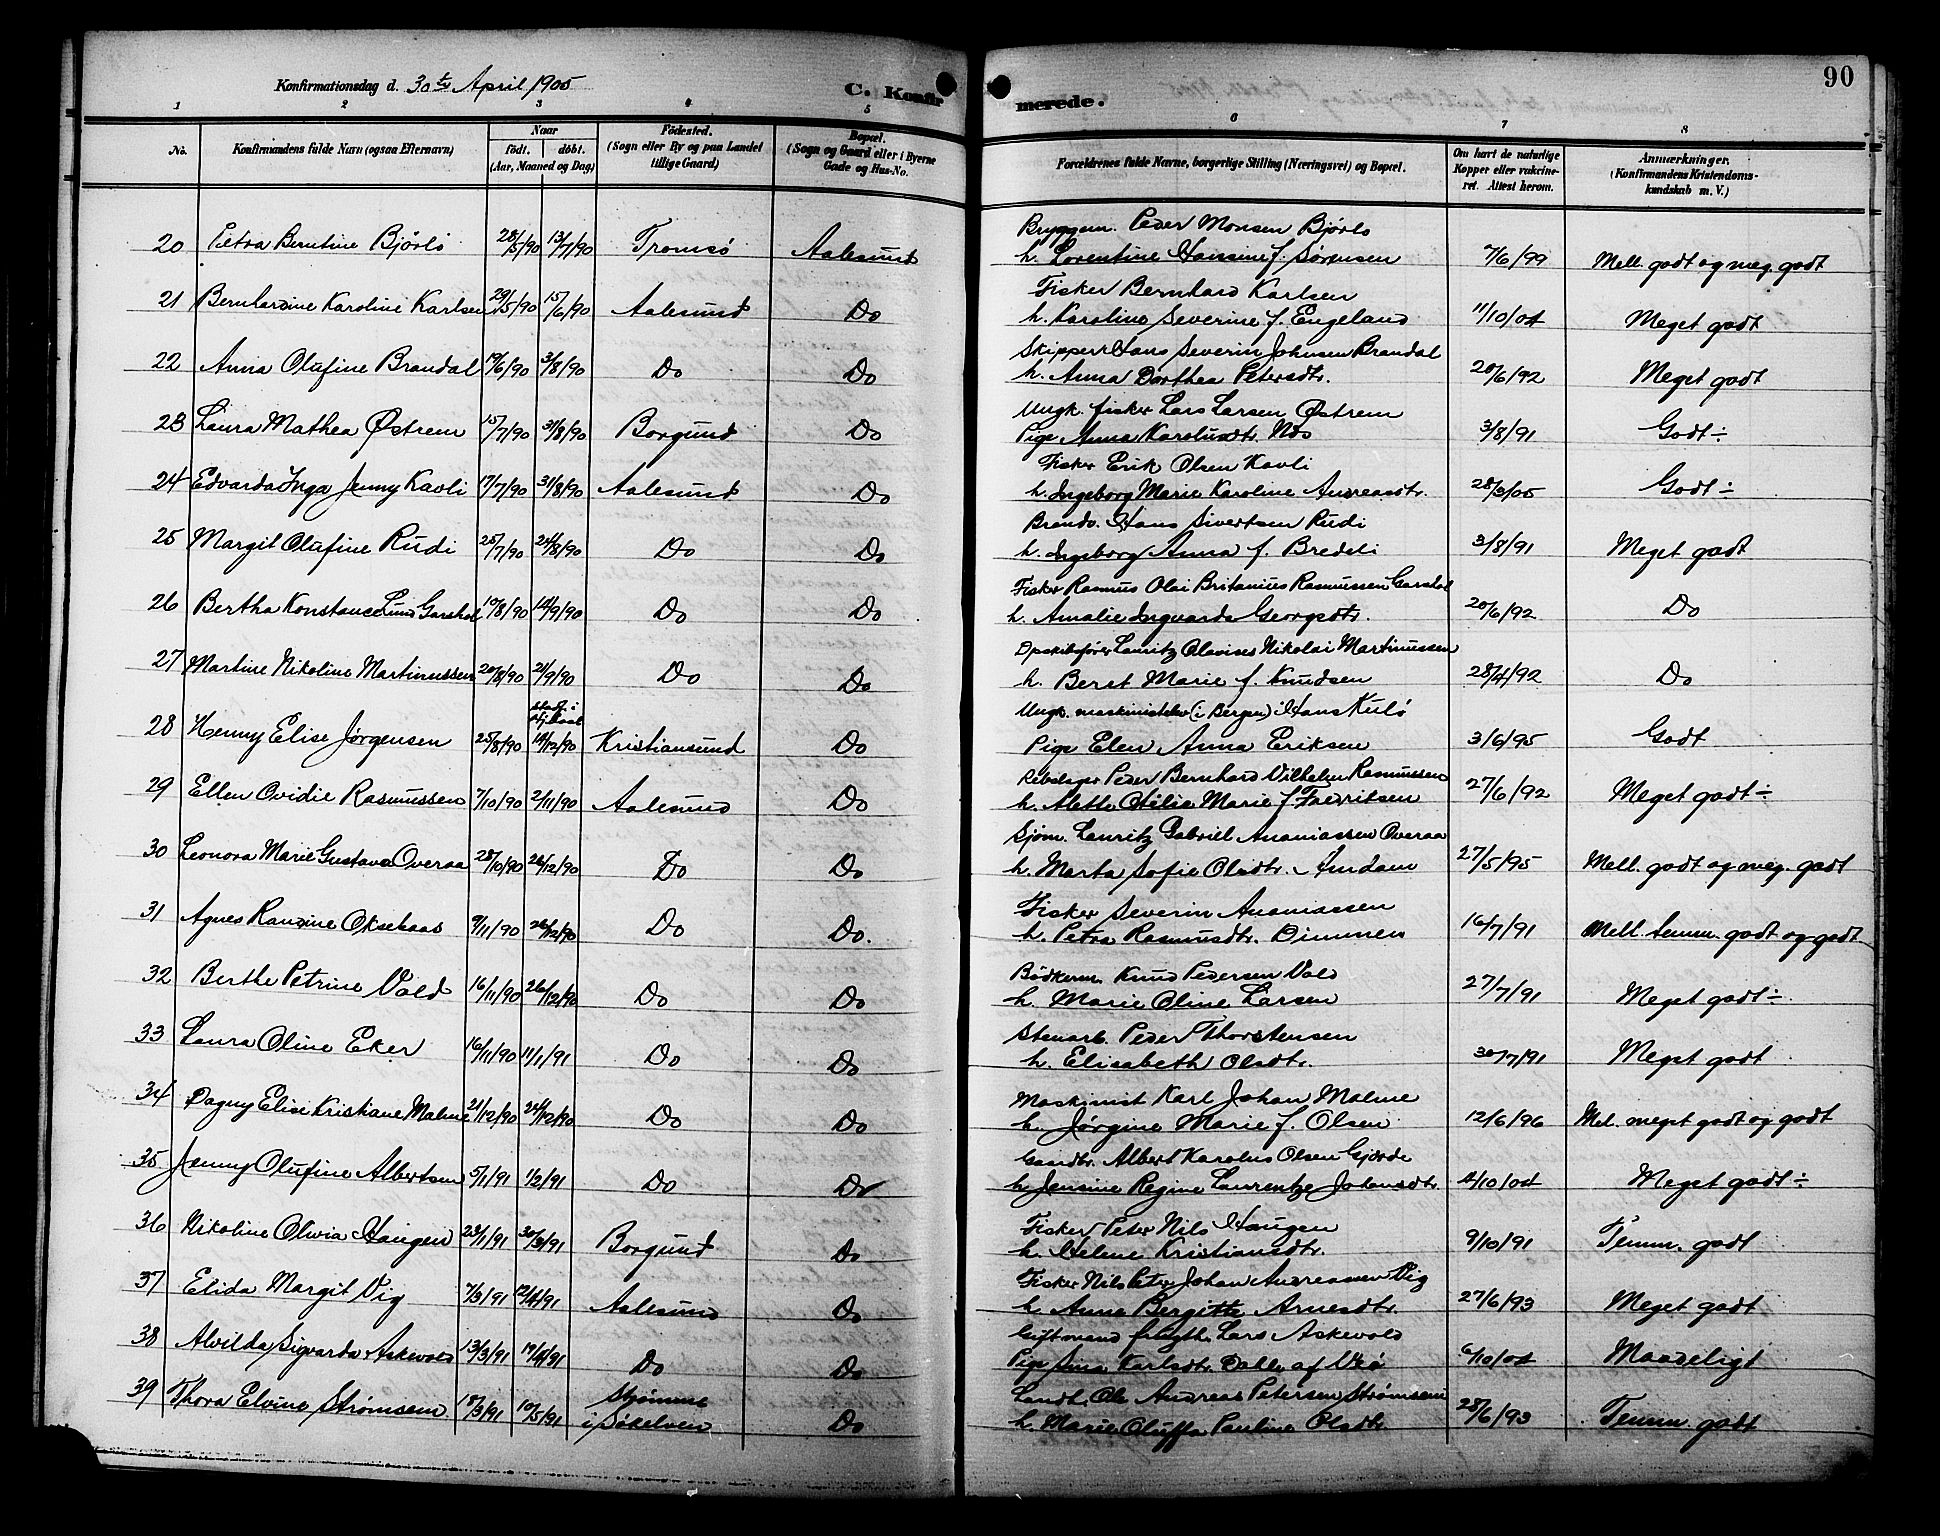 90
Konfirmationsdag d. 30te April 1905
C. Konfirmerede.
1 2 3 4 5 6 7 8
No.
Konfirmandens fulde Navn (ogsaa Efternavn)
Naar
födt. döbt.
(Aar, Maaned og Dag)
Födested.
(Sogn eller By og paa Landet
tillige Gaard)
Bopæl.
(Sogn og Gaard eller i Byerne
Gade og Hus-No.
Forældrenes fulde Navne, borgerlige Stilling (Næringsvei) og Bopæl.
Om havt de naturlige
Kopper eller vakcine-
ret. Attest herom.
Anmærkninger.
(Konfirmandens Kristendoms-
kundskab m. V.)
20 Petra Berntine Bjørlo 28/5/90 13/7/90 Tromsö Aalesund
Bryggem. Peder Monsen Bjørlo
h. Lorentine Hansine f. Sørensen 7/6/99 Mell. godt og meg. godt
21 Bernhardine Karoline Karlsen 29/5/90 15/6/90 Aalesund Do
Fisker Bernhard Karlsen
h. Karoline Severine f. Engeland 11/10/04 Meget godt
22 Anna Olufine Brandal 19/6/90 3/8/90 Do Do
Skipper Hans Severin Johnsen Brandal
h. Anna Dorthea Petersdtr. 20/6/92 Meget godt
23 Laura Mathea Østrem 15/7/90 31/8/90 Borgund Do
Ungk. fisker Lars Larsen Østrem
Pige Anna Karolusdtr. Nös 3/8/91 Godt ÷
24 Edvarda Inga Jenny Kavli 17/7/90 31/8/90 Aalesund Do
Fisker Erik Olsen Kavli
h. Ingeborg Marie Karoline Andreasdtr. 28/3/05 Godt ÷
25 Margit Olufine Rudi 25/7/90 24/8/90 Do Do
Brandv. Hans Sivertsen Rudi
h. Ingeborg Anna f. Bredeli 3/8/91 Meget godt
26 Bertha Konstance Lund Garshol 10/8/90 14/9/90 Do Do
Fisker Rasmus Olai Britanius Rasmussen Garshol
h. Amalie Ingvarda Georgsdtr. 20/6/92 Do
27 Martine Nikoline Martinussen 20/8/90 21/9/90 Do Do
Dpskibsfører Lauritz Olavises Nikolai Martinussen
h. Beret Marie f. Knudsen 28/4/92 Do
28 Henny Elise Jørgensen 25/8/90 stadf. i 14/12/90 Kristiansund Do
Ungk. maskinistelev (i Bergen) Hans Kulö
Pige Elen Anna Eriksen 3/6/95 Godt
29 Ellen Ovidie Rasmussen 7/10/90 2/11/90 Aalesund Do
Rebslager Peder Bernhard Vilhelm Rasmussen
h. Alette Otilie Marie f. Fredriksen 27/6/92 Meget godt ÷
30 Leonora Marie Gustava Overaa 28/10/90 26/12/90 Do Do
Sjöm. Lauritz Gabriel Ananiassen Overaa
h. Marta Sofie Olsdtr. Amdam 27/5/95 Mell. godt og meg. godt
31 Agnes Randine Oksebaas 9/11/90 26/12/90 Do Do.
Fisker Severin Ananiassen
h. Petra Rasmusdtr. Dimmen 16/7/91 Mell. temm. godt og godt
32 Berthe Petrine Vold 16/11/90 26/12/90 Do Do
Bödkerm. Knud Pedersen Vold
h. Marie Oline Larsen 27/7/91 Meget godt ÷
33 Laura Oline Eker 16/11/90 11/1/91 Do Do
Stenarb. Peder Thorstensen
h. Elisabeth Olsdtr. 30/7/91 Meget godt
34 Dagny Elise Kristiane Malme 21/12/90 24/12/90 Do Do
Maskinist Karl Johan Malme
h. Jørgine Marie f. Olsen 12/6/96 Mel. meget godt og godt
35 Jenny Olufine Albertsen 5/1/91 1/2/91 Do Do
Gaardbr. Albert Karolus Olsen Gjørde
h. Jensine Regine Laurentze Johansdtr. 4/10/04 Meget godt ÷
36 Nikoline Olivia Haugen 23/1/91 30/3/91 Borgund Do
Fisker Peter Nils Haugen
h. Helene Kristiansdtr. 9/10/91 Temm. godt
37 Elida Margit Vig 7/3/91 12/4/91 Aalesund Do
Fisker Nils Peter Johan Andreassen Vig
h. Anna Bergitte Arnesdtr. 27/6/93 Meget godt
38 Alvilda Sigvarda Askevold 13/3/91 19/4/91 Do Do
Giftmand Lars Askevold
Pige Karlsdtr. Dahle af Veö 6/10/04 Maadeligt
39 Thora Elvine Strømsem 18/3/91 10/5/91 Strømme i Søkelven Do
Landh. Ole Andreas Petersen Strømsem
h. Marie Oluffa Pauline Olsdtr. 28/6/93 Temm. godt